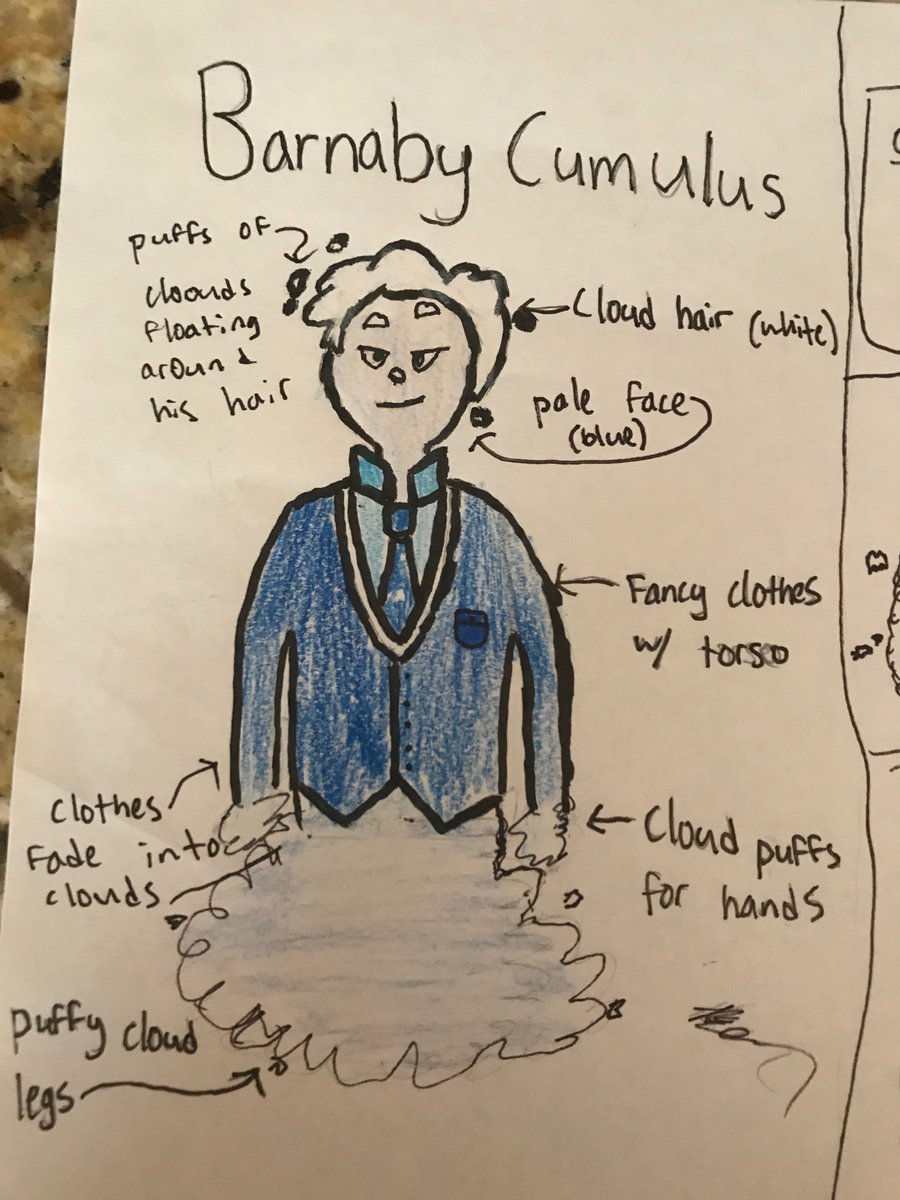 Barnaby Cumulus
puffs of
cloouds
floating
around
his hair
Cloud hair (white)
pale face
(blue)
Fancy clothes
w/ torso
Clothes
Fade into
clouds
Cloud puffs
for hands
Puffy cloud
legs